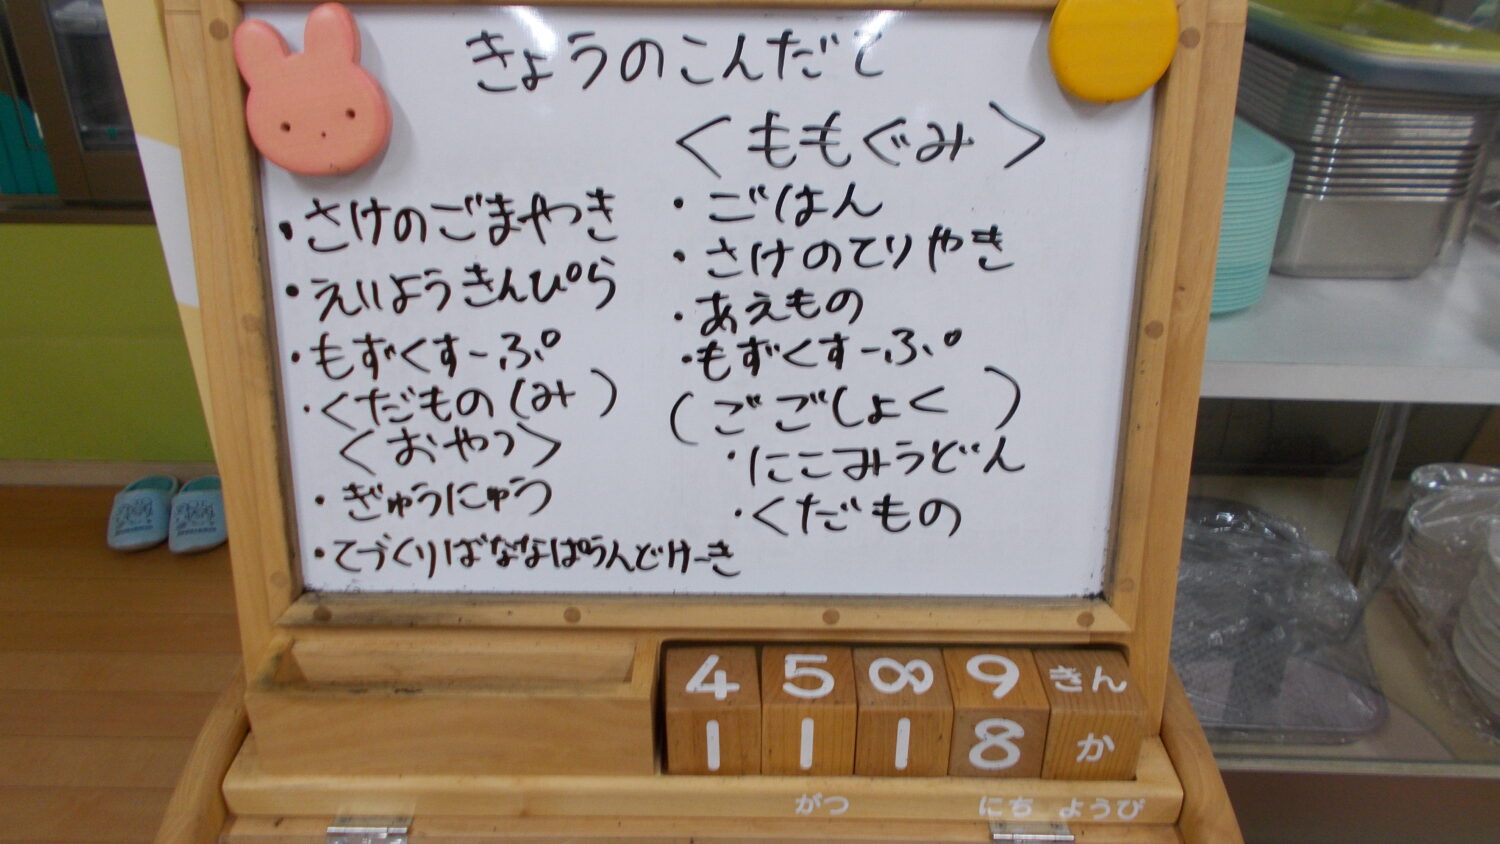 きょうのこんだて
・さけのごまやき
・えいようきんぴら
・もずくすーぷ
・くだもの(み)
<おやつ>
・ぎゅうにゅう
・てづくりばななぱうんどけーき
<ももぐみ>
・ごはん
・さけのてりやき
・あえもの
・もずくすーぷ
(ごごしょく)
・にこみうどん
・くだもの
4 5 8 9 きん
1 1 1 8 か
がつ にち ようび